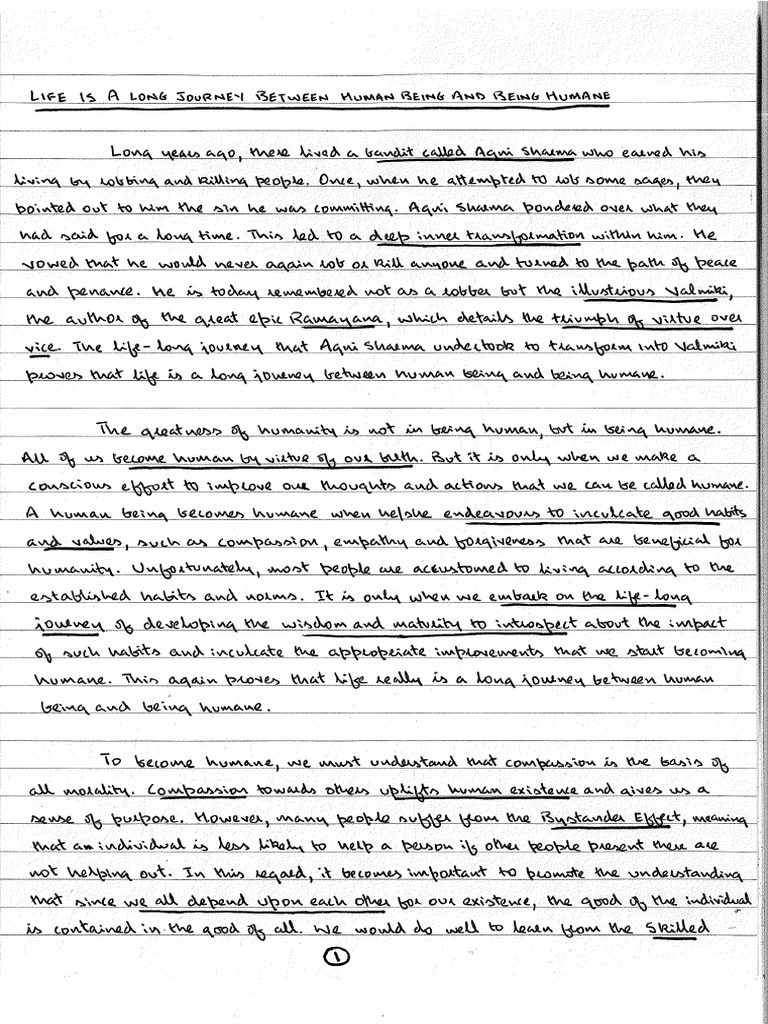 LIFE IS A LONG JOURNEY BETWEEN HUMAN BEING AND BEING HUMANE
Long years ago, there lived a bandit called Agni Sharma who earned his
living by robbing and killing people. Once, when he attempted to rob some sages, they
pointed out to him the sin he was committing. Agni Sharma pondered over what they
had said for a long time. This led to a deep inner transformation within him. He
vowed that he would never again rob or kill anyone and turned to the path of peace
and penance. He is today remembered not as a robber but the illustrious Valmiki,
the author of the great epic Ramayana, which details the triumph of virtue over
vice. The life-long journey that Agni Sharma undertook to transform into Valmiki
proves that life is a long journey between human being and being humane.
The greatness of humanity is not in being human, but in being humane.
All of us become human by virtue of our birth. But it is only when we make a
conscious effort to improve our thoughts and actions that we can be called humane.
A human being becomes humane when he/she endeavours to inculcate good habits
and values, such as compassion, empathy and forgiveness that are beneficial for
humanity. Unfortunately, most people are accustomed to living according to the
established habits and norms. It is only when we embark on the life-long
journey of developing the wisdom and maturity to introspect about the impact
of such habits and inculcate the appropriate improvements that we start becoming
humane. This again proves that life really is a long journey between human
being and being humane.
To become humane, we must understand that compassion is the basis of
all morality. Compassion towards others uplifts human existence and gives us a
sense of purpose. However, many people suffer from the Bystander Effect, meaning
that an individual is less likely to help a person if other people present there are
not helping out. In this regard, it becomes important to promote the understanding
that since we all depend upon each other for our existence, the good of the individual
is contained in the good of all. We would do well to learn from the Skilled
1